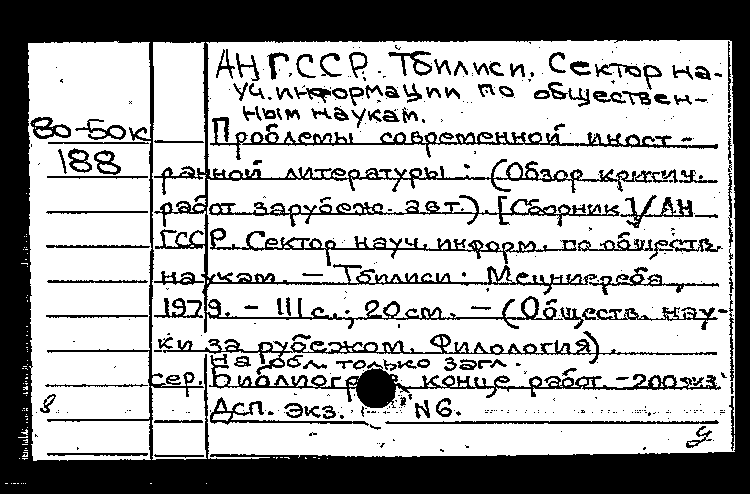 АН ГССР. Тбилиси. Сектор на-
уч. информации по обществен-
ным наукам.
80-50к Проблемы современной иност-
188 ранной литературы : (Обзор критич.
работ зарубеж. авт.). [Сборник] / АН
ГССР. Сектор науч. информ. по обществ.
наукам. – Тбилиси : Мецниереба,
1979. – 111 с.; 20 см. – (Обществ. нау-
ки за рубежом. Филология).
На обл. только загл.
сер. Библиогр. конце работ. – 200 экз.
8 Дсп. экз. N6.
у